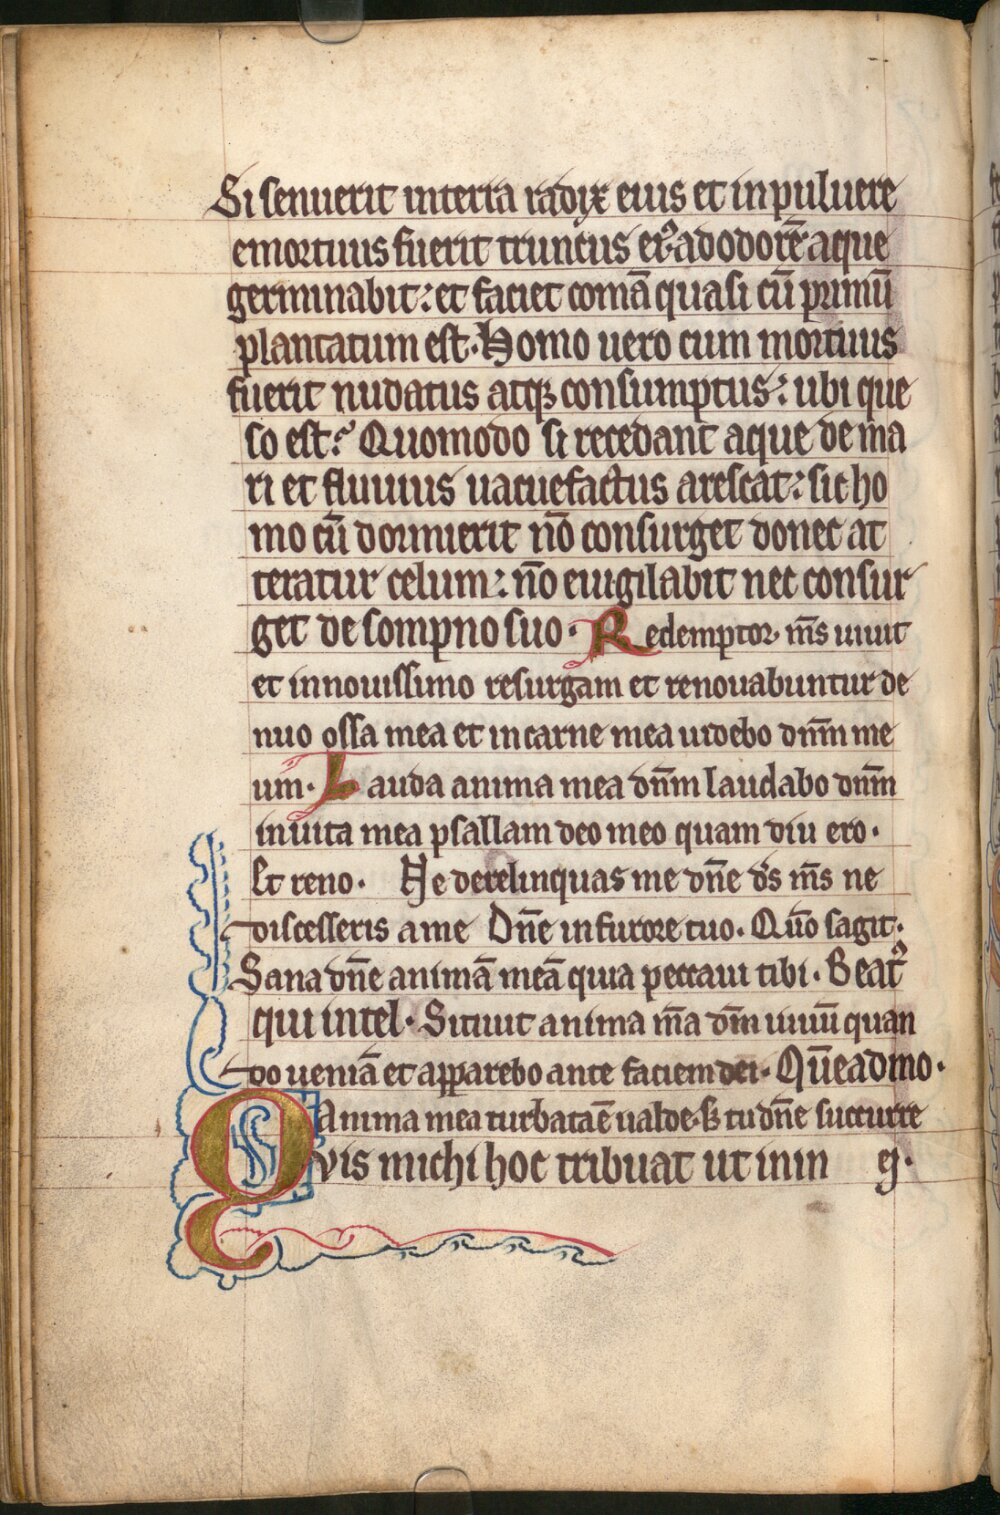 Si senuerit interra radix eius et inpuluere
emortuus fuerit truncus ei⁹ adodorē aque
germinabit: et faciet comā quasi cū primū
plantatum est. Homo uero cum mortuus
fuerit nudatus atqꝫ consumptus: ubi que
so est? Quomodo si recedant aque de ma
ri et fluuius uacuefactus arescat: sic ho
mo cū dormierit nō consurget donec at
teratur celum: nō euigilabit nec consur
get de sompno suo. Redemptor m̄s uiuit
et innouissimo resurgam et renouabuntur de
nuo ossa mea et incarne mea uidebo dn̄m me
um. Lauda anima mea dn̄m laudabo dn̄m
inuita mea psallam deo meo quam diu ero.
Et reno. Ne derelinquas me dn̄e d̄s m̄s ne
discesseris a me Dn̄e infurore tuo. Qūo sagit.
Sana dn̄e animā meā quia peccaui tibi. Beat⁹
qui intel. Sitiuit anima m̄a dm̄ uiuū quan
do ueniā et apparebo ante faciem dei. Qūeadmo.
Anima mea turbata ē ualde. sꝫ tu dn̄e succurre
Qvis michi hoc tribuat ut inin ej.